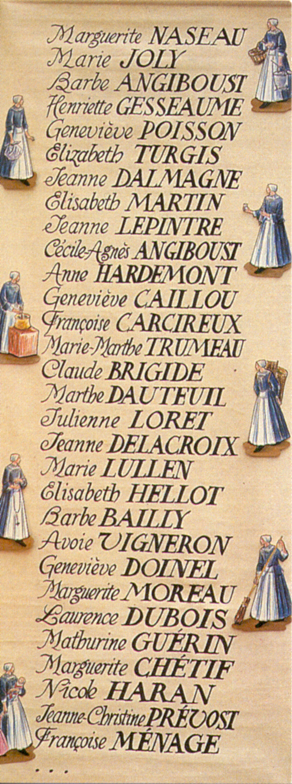 Marguerite NASEAU
Marie JOLY
Barbe ANGIBOUST
Henriette GESSEAUME
Geneviève POISSON
Elizabeth TURGIS
Jeanne DALMAGNE
Elisabeth MARTIN
Jeanne LEPINTRE
Cécile-Agnès ANGIBOUST
Anne HARDEMONT
Geneviève CAILLOU
Françoise CARCIREUX
Marie-Marthe TRUMEAU
Claude BRIGIDE
Marthe DAUTEUIL
Julienne LORET
Jeanne DELACROIX
Marie LULLEN
Elisabeth HELLOT
Barbe BAILLY
Avoie VIGNERON
Geneviève DOINEL
Marguerite MOREAU
Laurence DUBOIS
Mathurine GUÉRIN
Marguerite CHÉTIF
Nicole HARAN
Jeanne-Christine PRÉVOST
Françoise MÉNAGE
...